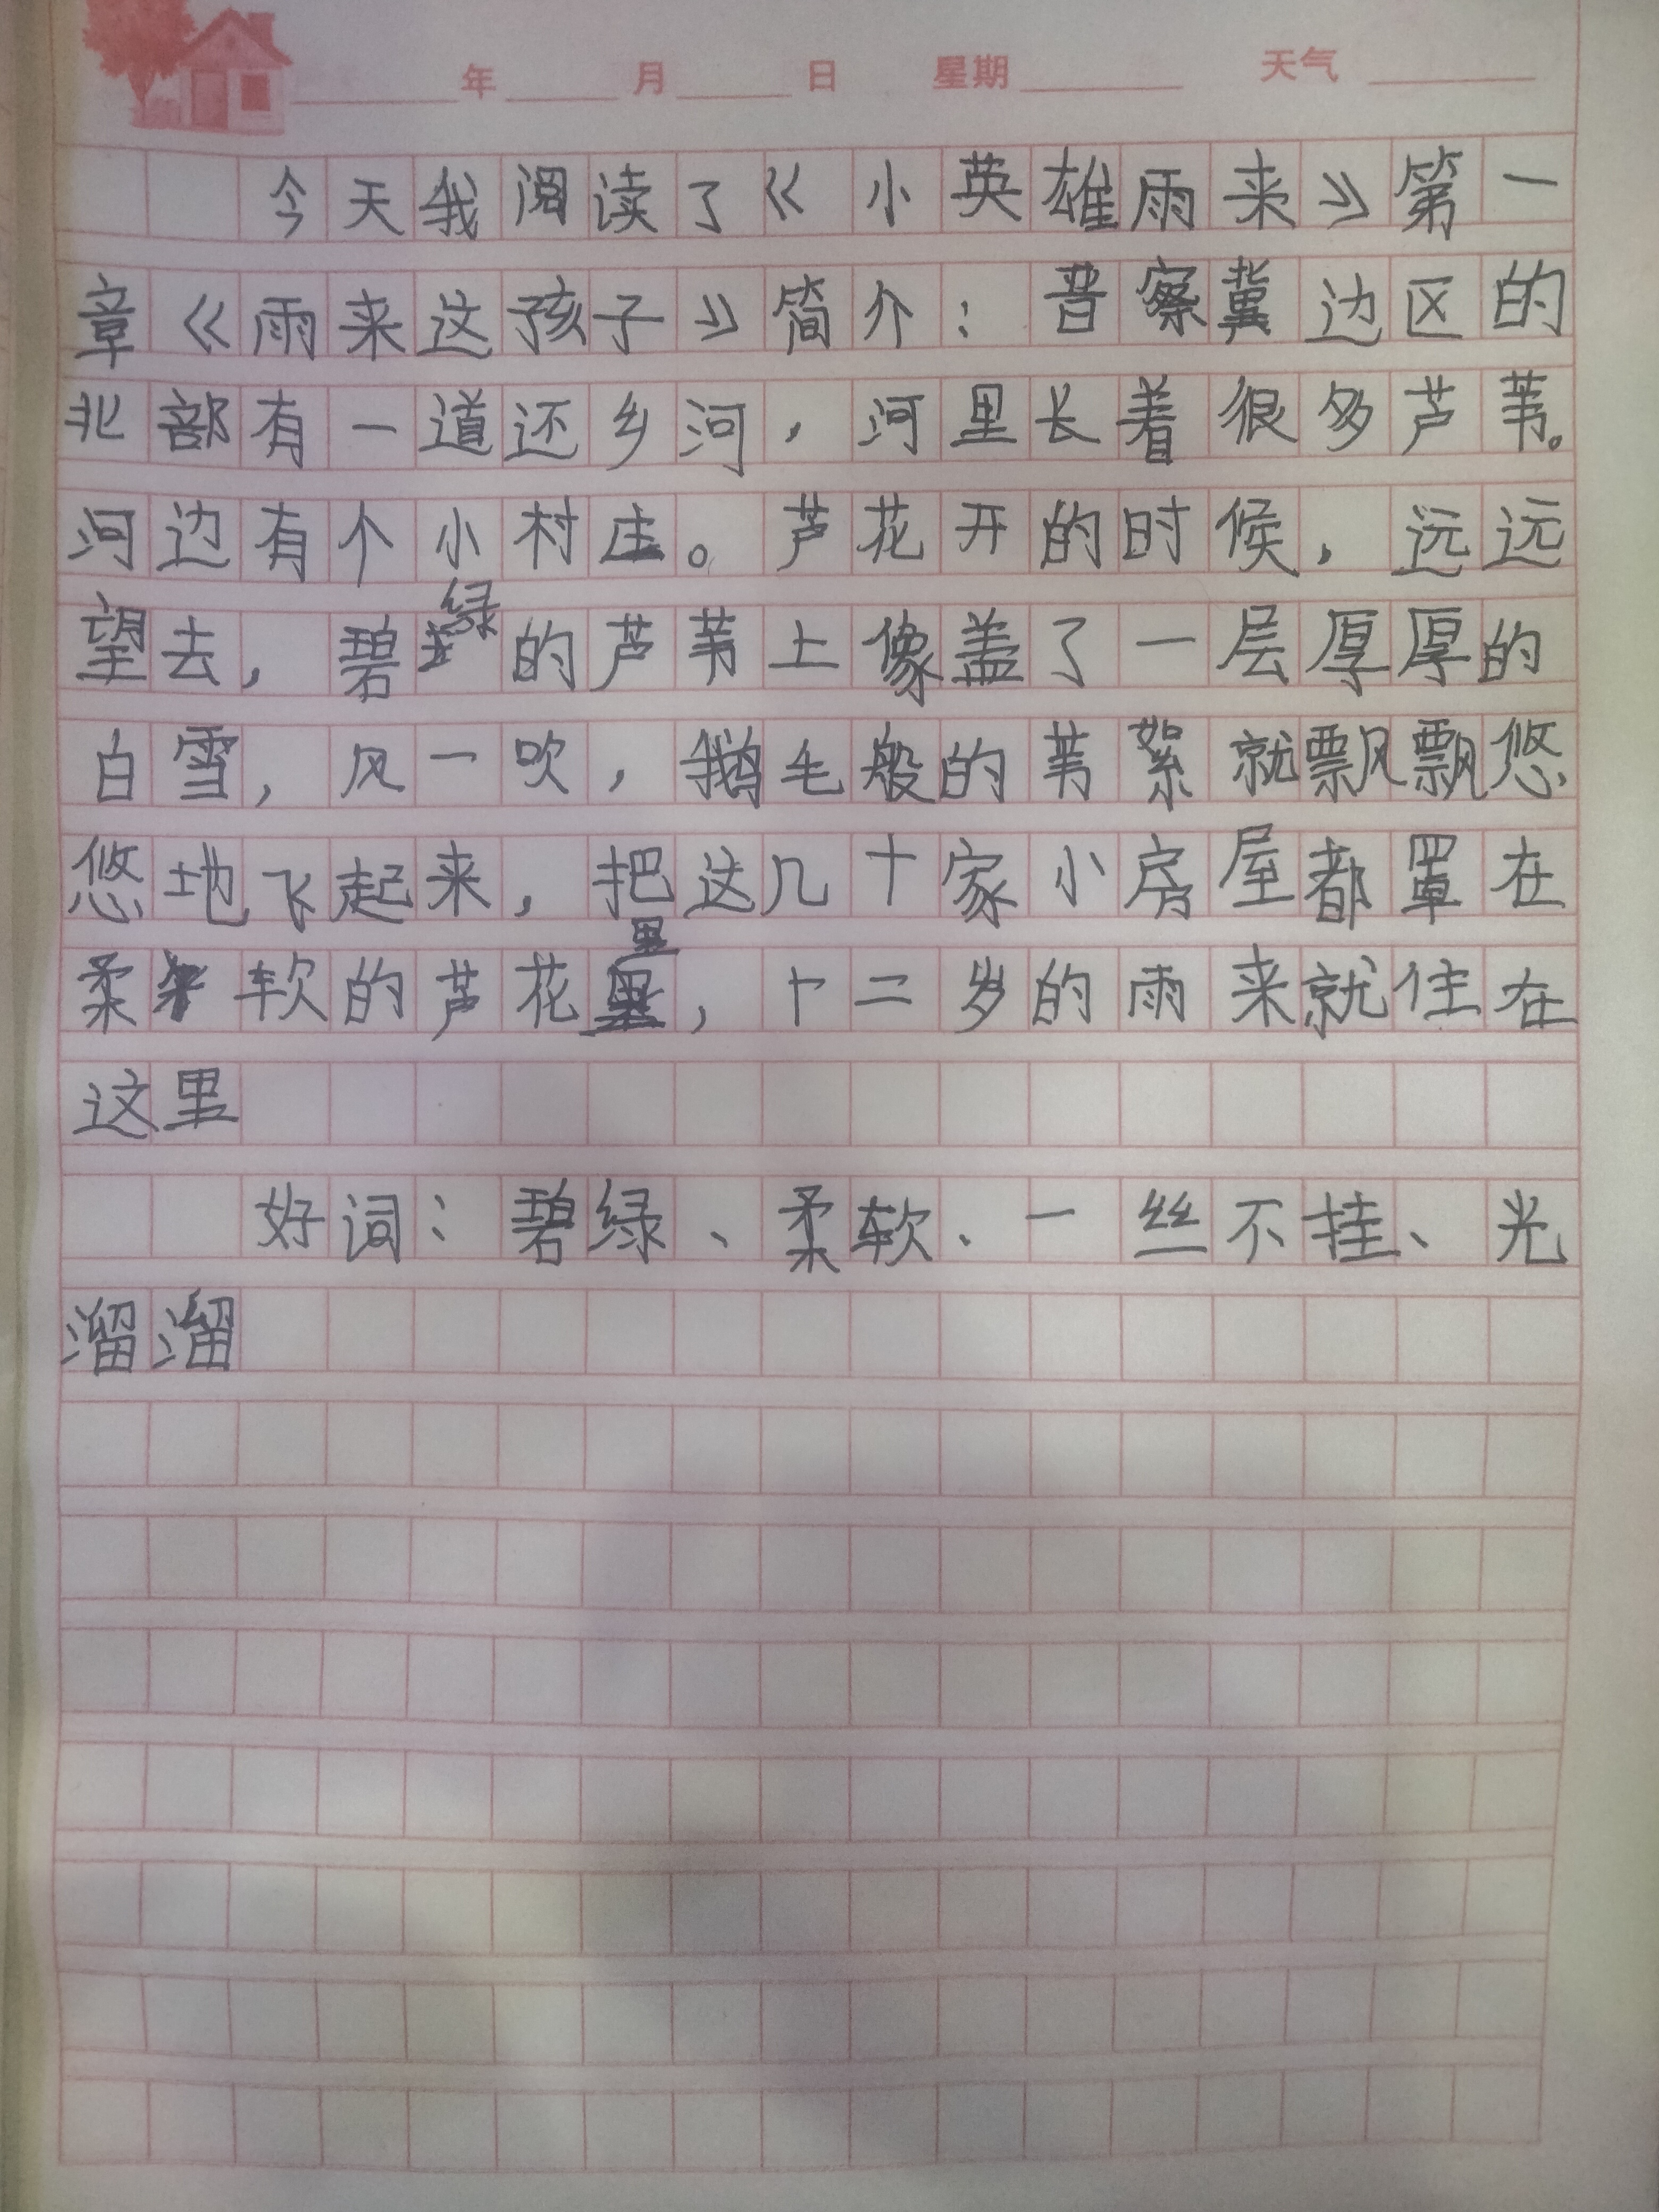 年 月 日 星期 天气
今天我阅读了《小英雄雨来》第一
章《雨来这孩子》简介：晋察冀边区的
北部有一道还乡河，河里长着很多芦苇。
河边有个小村庄。芦花开的时候，远远
望去，碧绿的芦苇上像盖了一层厚厚的
白雪，风一吹，鹅毛般的苇絮就飘飘悠
悠地飞起来，把这几十家小房屋都罩在
柔软的芦花里，十二岁的雨来就住在
这里
好词：碧绿、柔软、一丝不挂、光
溜溜